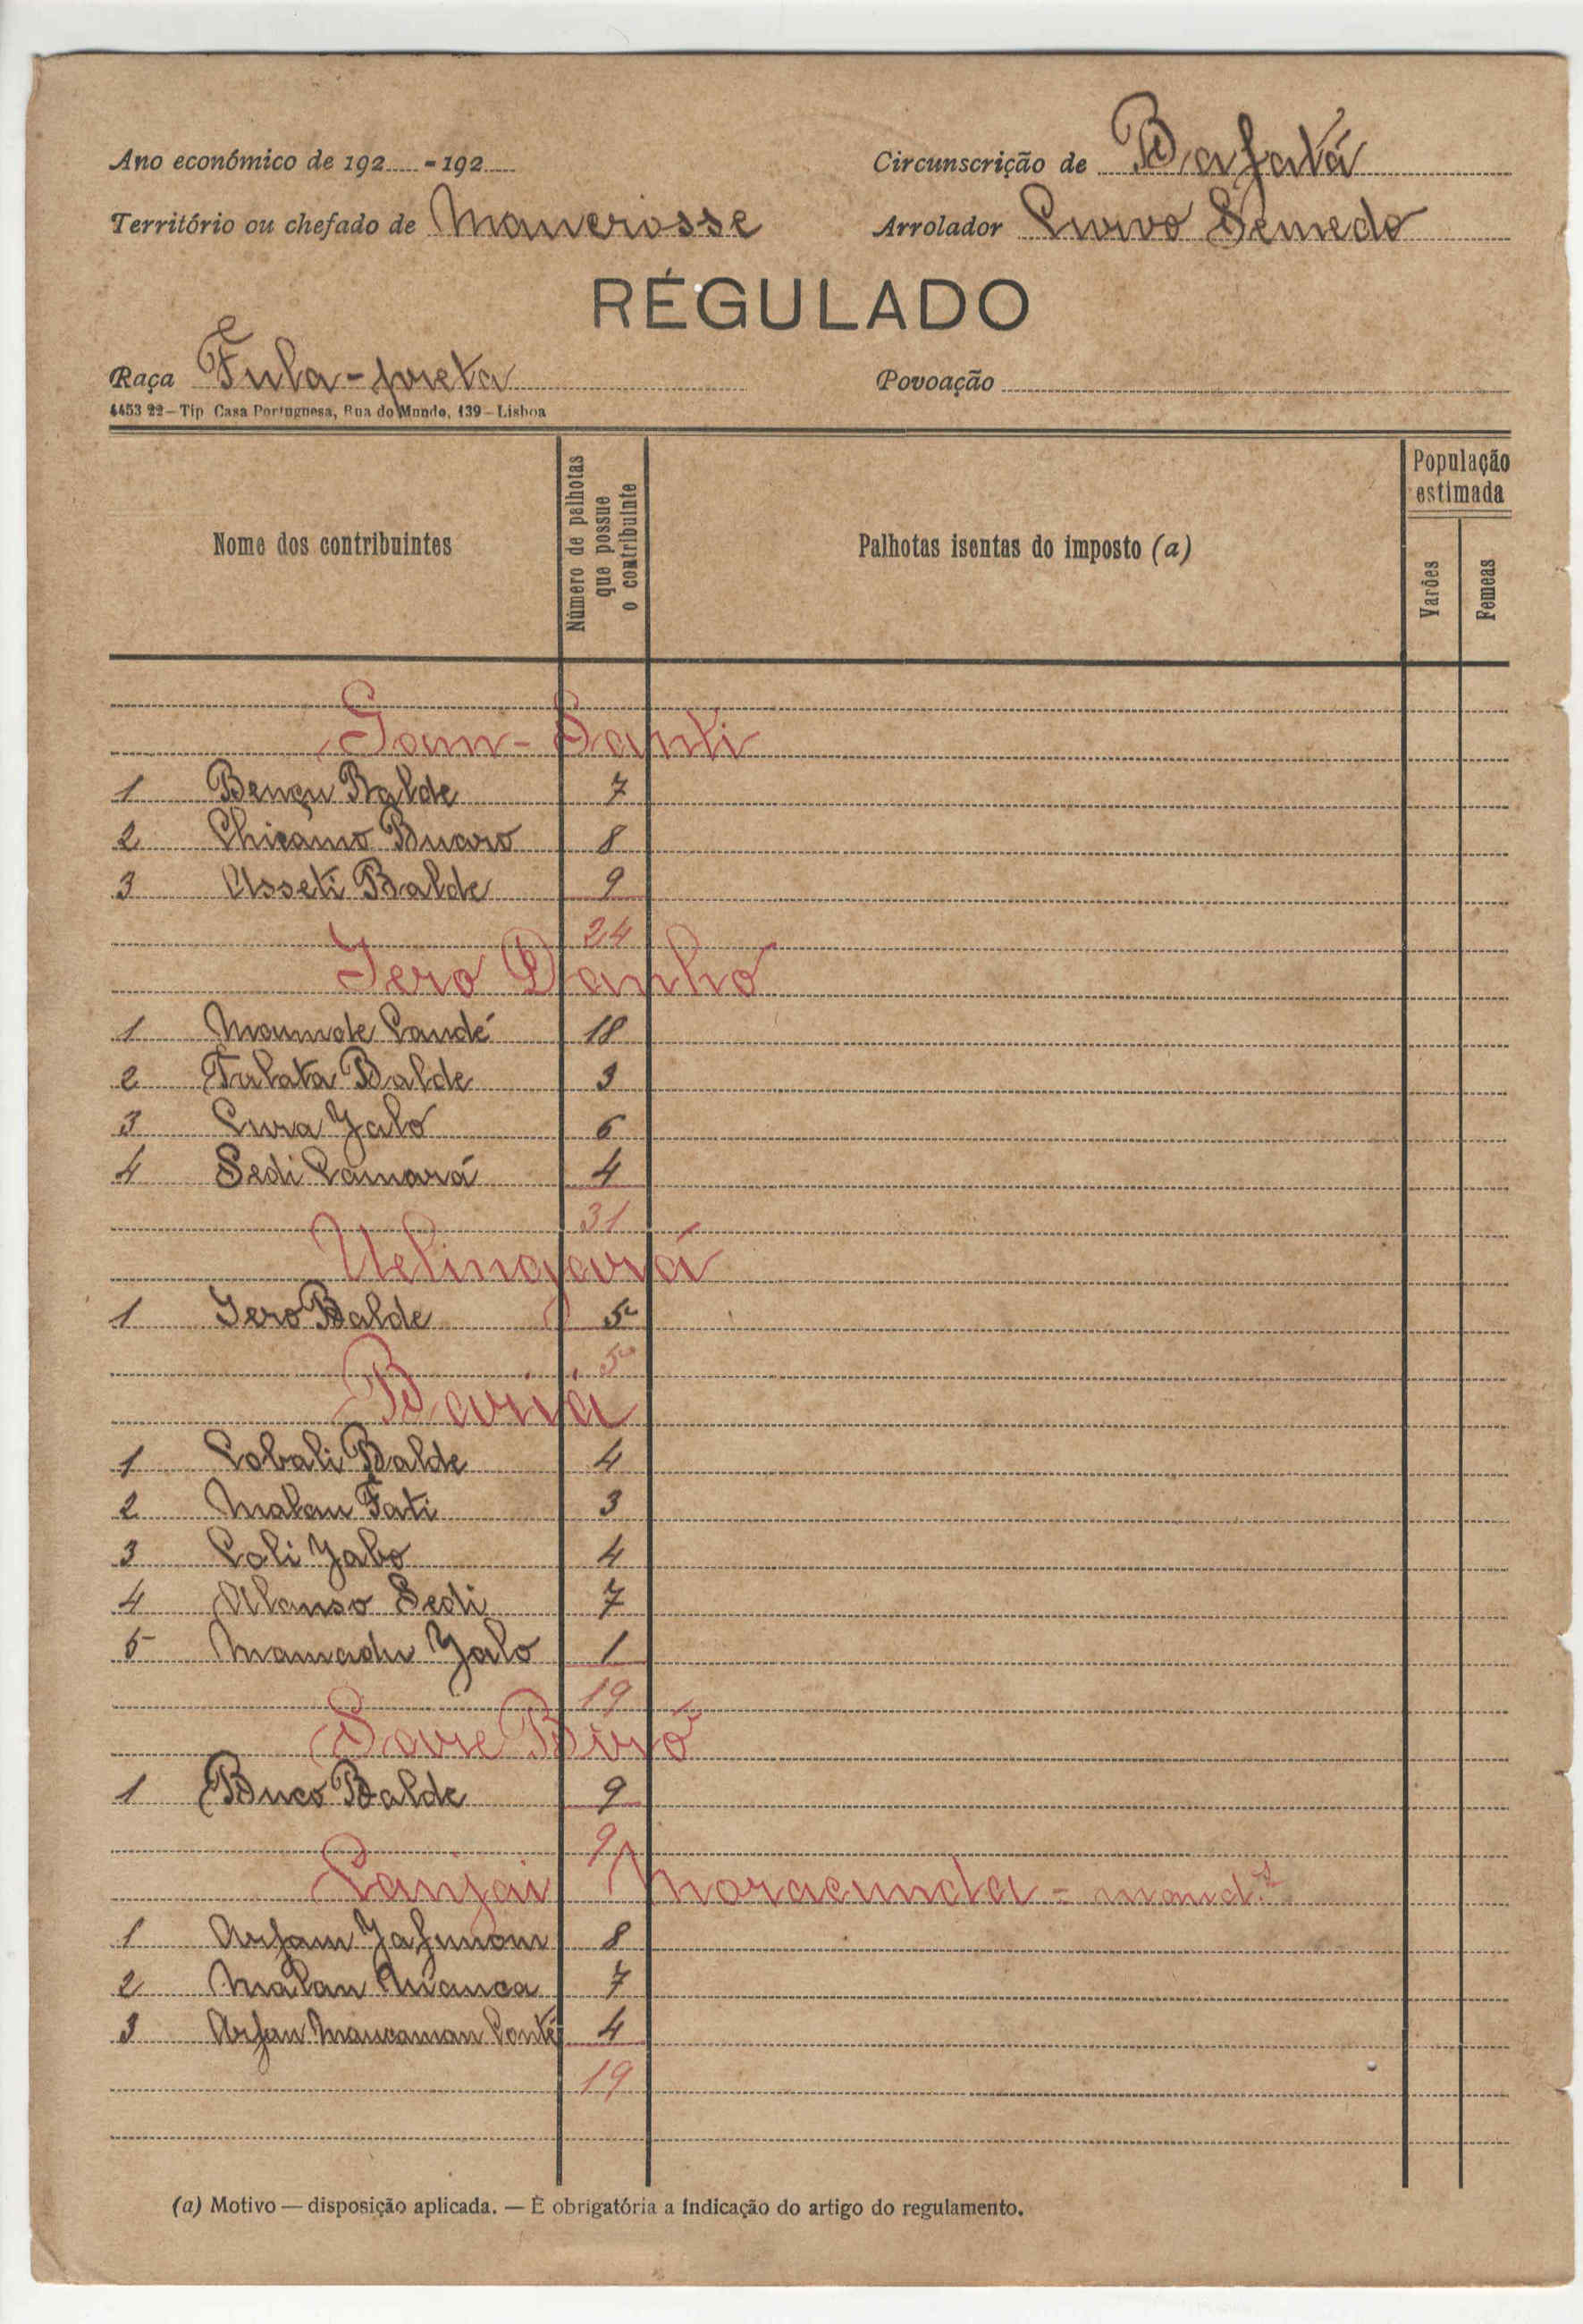 Ano económico de 192 - 192
Circunscrição de Bafatá
Território ou chefado de Mancrosse
Arrolador Curvo Semedo
RÉGULADO
Raça Fula-preta
Povoação
4453 22 — Tip Casa Portuguesa, Rua do Mundo, 139 — Lisboa
Nome dos contribuintes
Número de palhotas que possue o contribuinte
Palhotas isentas do imposto (a)
População estimada
Varões
Femeas
Sam-Santi
1 Bençu Balde 7
2 Buaro 8
3 Asseti Balde 9
24
Iero Danhó
1 Mamude Candé 18
2 Fulata Balde 3
3 Cura Jaló 6
4 Sedi Camará 4
31
Uelingará
1 Iero Balde 5
5
1 Cobali Balde 4
2 Malan Fati 3
3 Coli Jalo 4
4 Alanso Sedi 7
5 Mamadu Jalo 1
19
Sare Biró
1 Buco Balde 9
9
Canjai Moracunda - mand.ª
1 Arfam Jafunom 8
2 Malan 7
3 Arfan Mancaman Conté 4
19
(a) Motivo — disposição aplicada. — É obrigatória a indicação do artigo do regulamento.